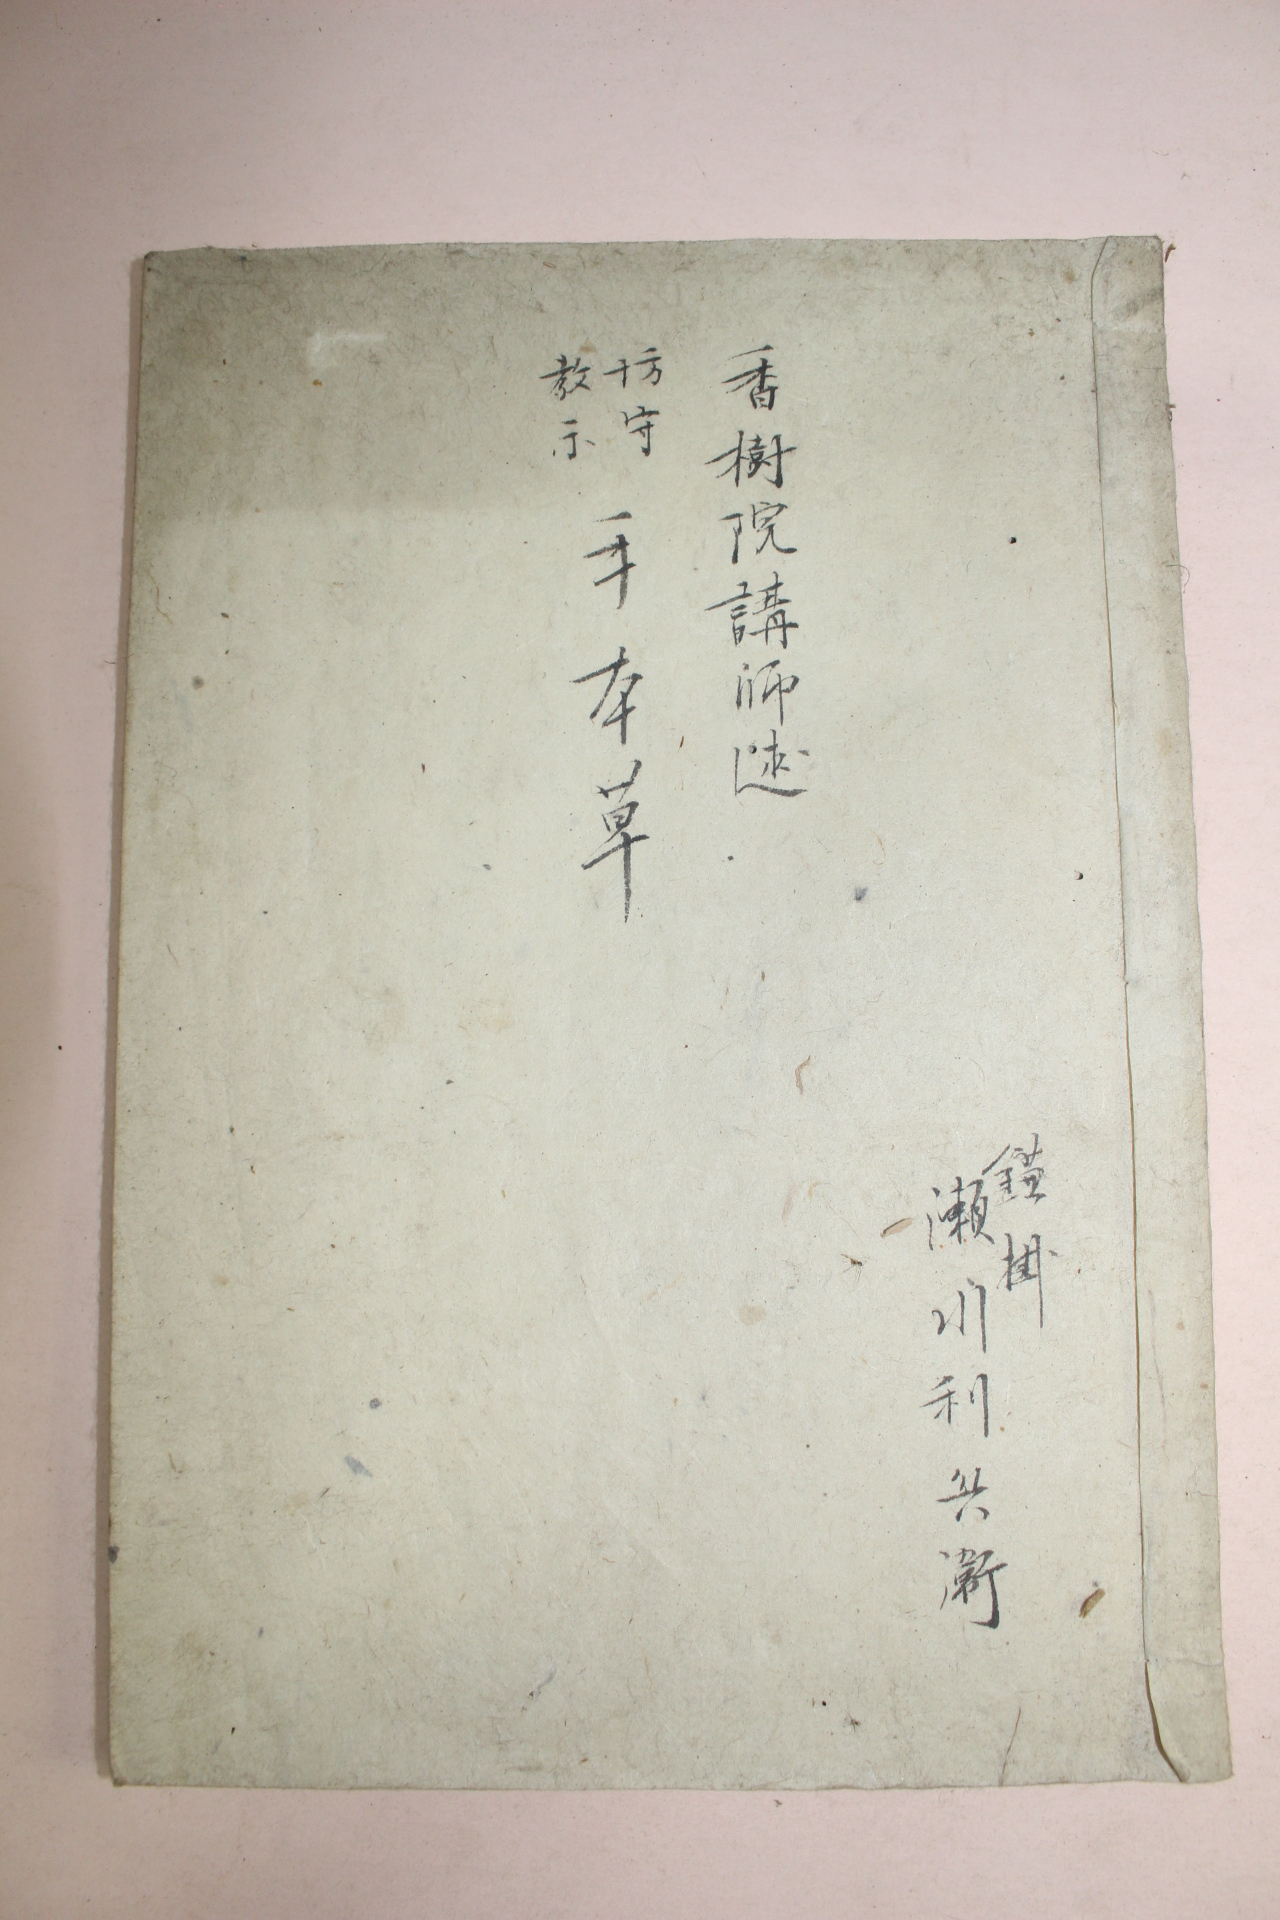 香樹院講師述
坊守
教示
手本草
鎰掛
瀬川利兵衛